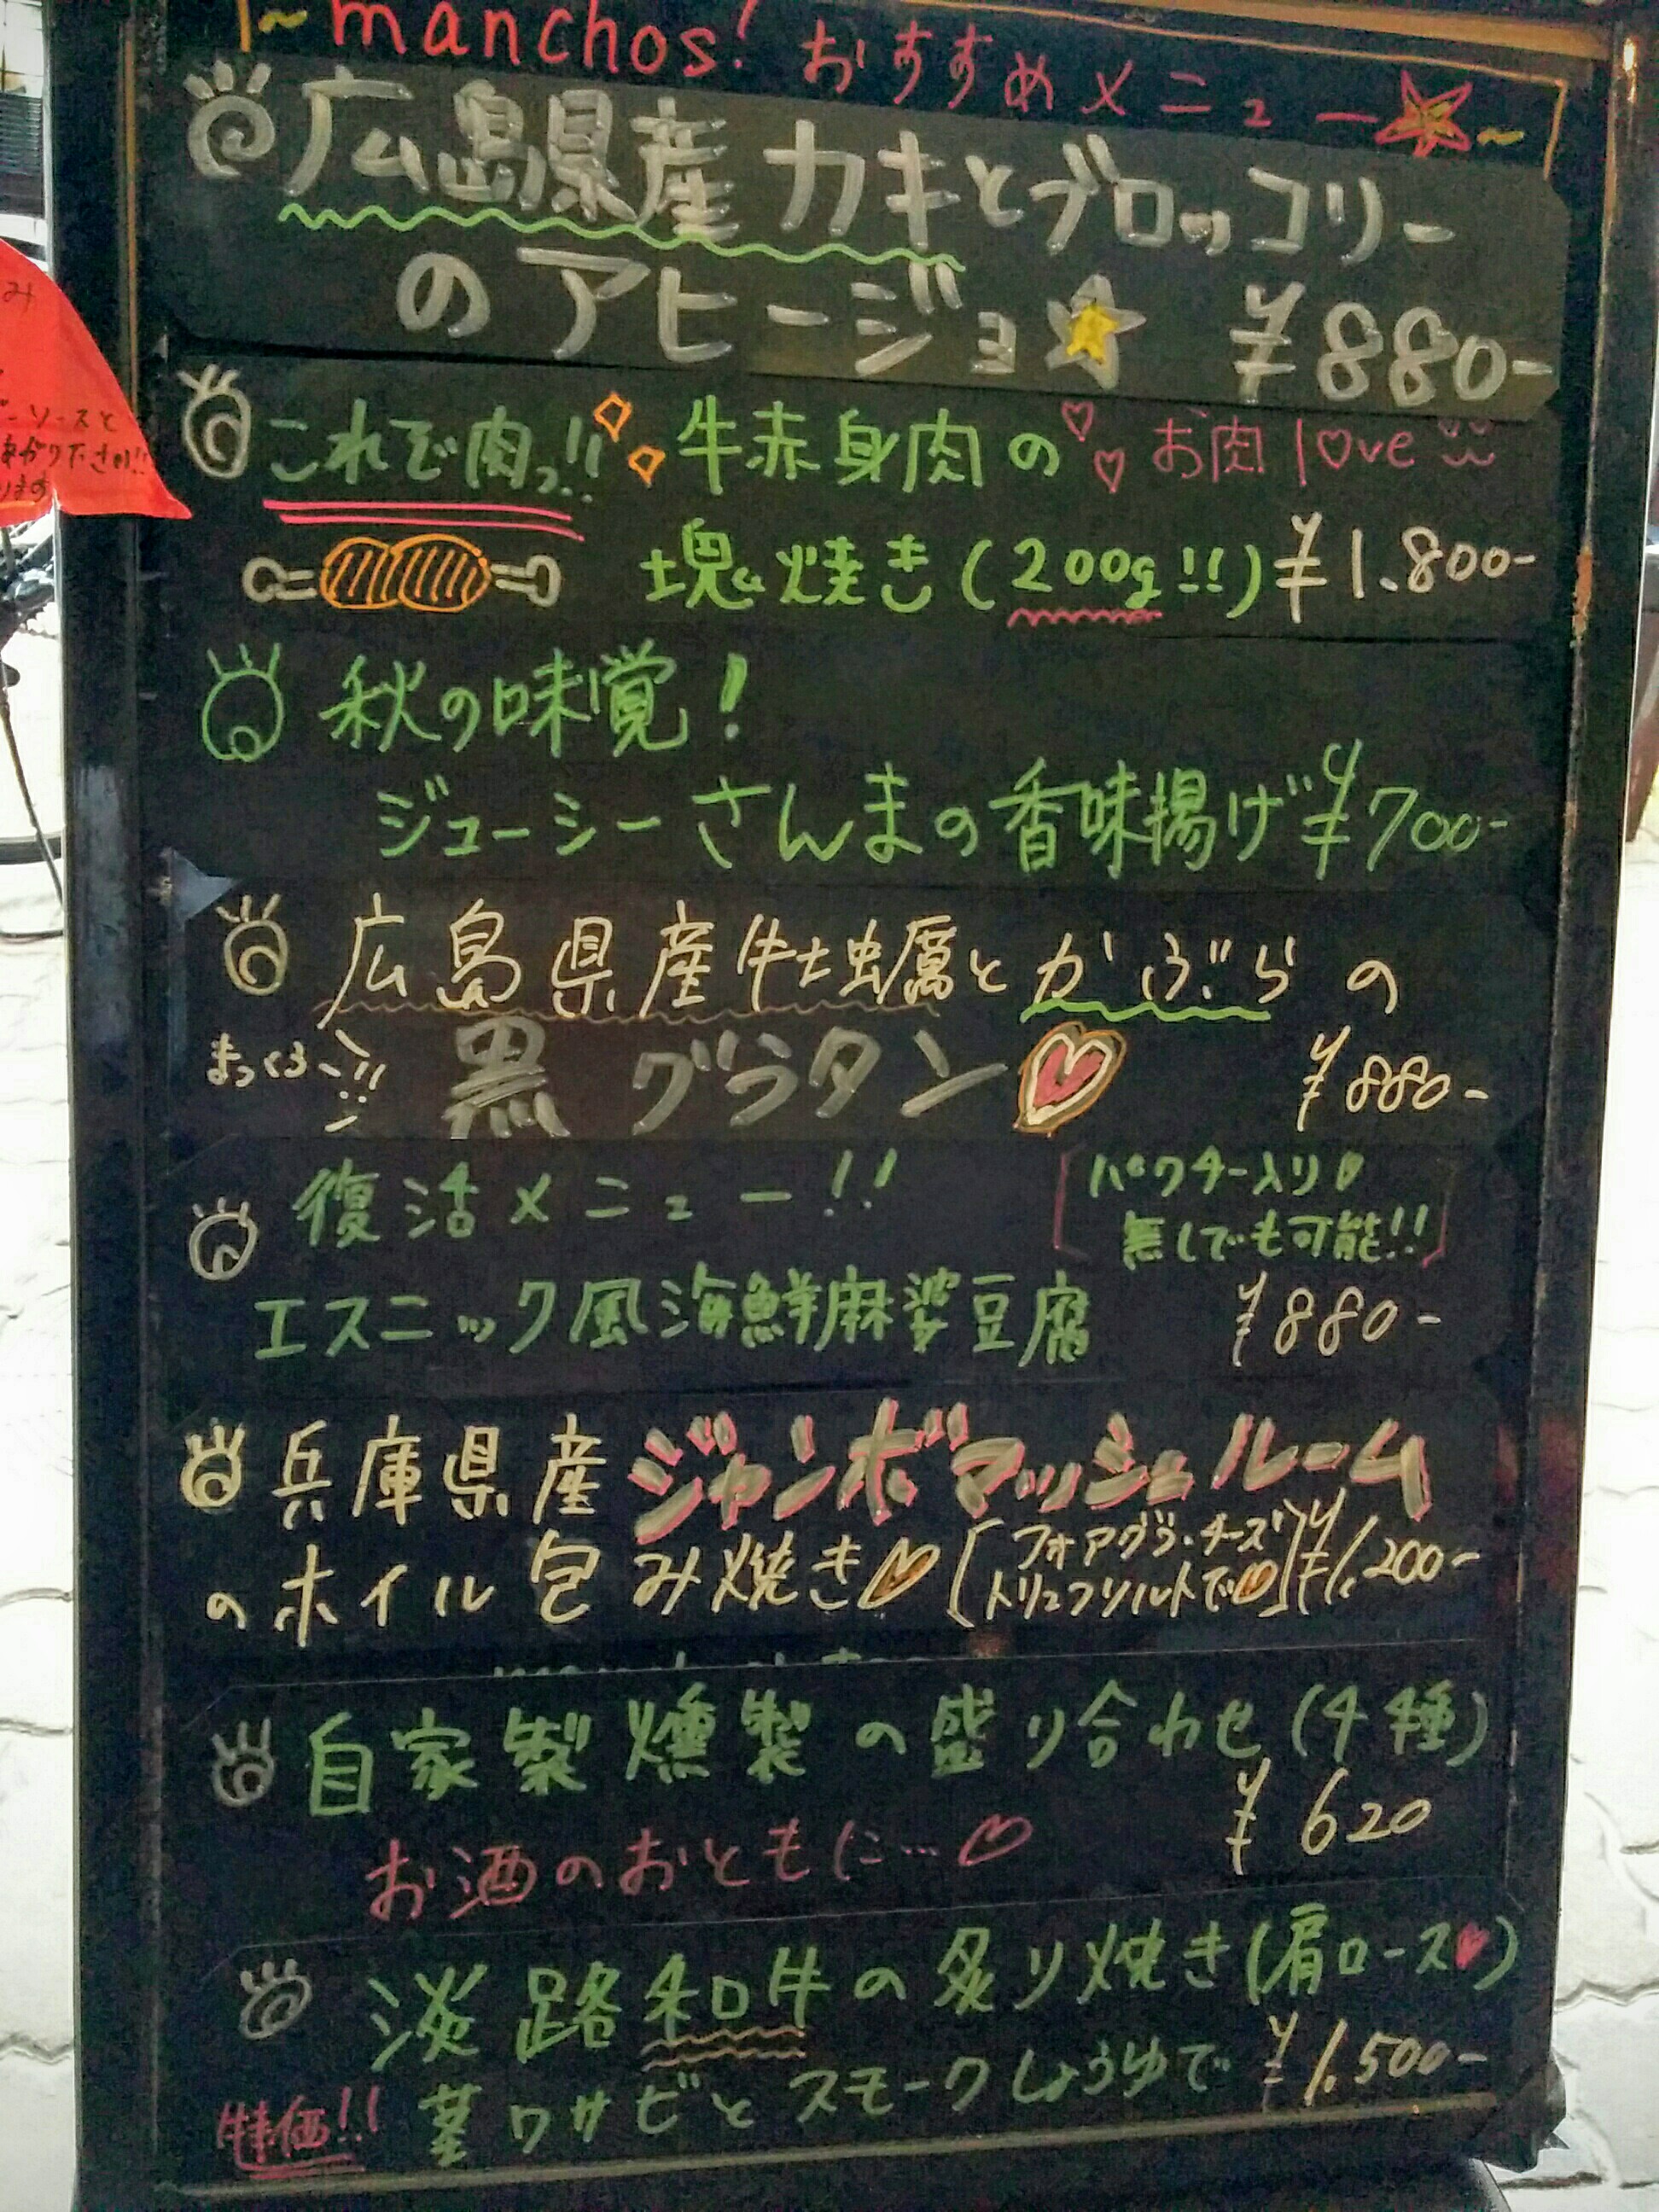 ~manchos! おすすめメニュー~
広島県産カキとブロッコリー
のアヒージョ ¥880-
これで肉っ!! 牛赤身肉の お肉love
塊焼き(200g!!) ¥1.800-
秋の味覚!
ジューシーさんまの香味揚げ ¥700-
広島県産牡蠣とかぶらの
まっくろ〜!! 黒グラタン ¥880-
復活メニュー!!
パクチー入り
無しでも可能!!
エスニック風海鮮麻婆豆腐 ¥880-
兵庫県産ジャンボマッシュルーム
のホイル包み焼き [フォアグラ・チーズ
トリュフソルトで] ¥1.200-
自家製燻製の盛り合わせ(4種)
¥620
お酒のおともに…
淡路和牛の炙り焼き(肩ロース)
特価!! 茎ワサビとスモークしょうゆで ¥1.500-
み
ソースと